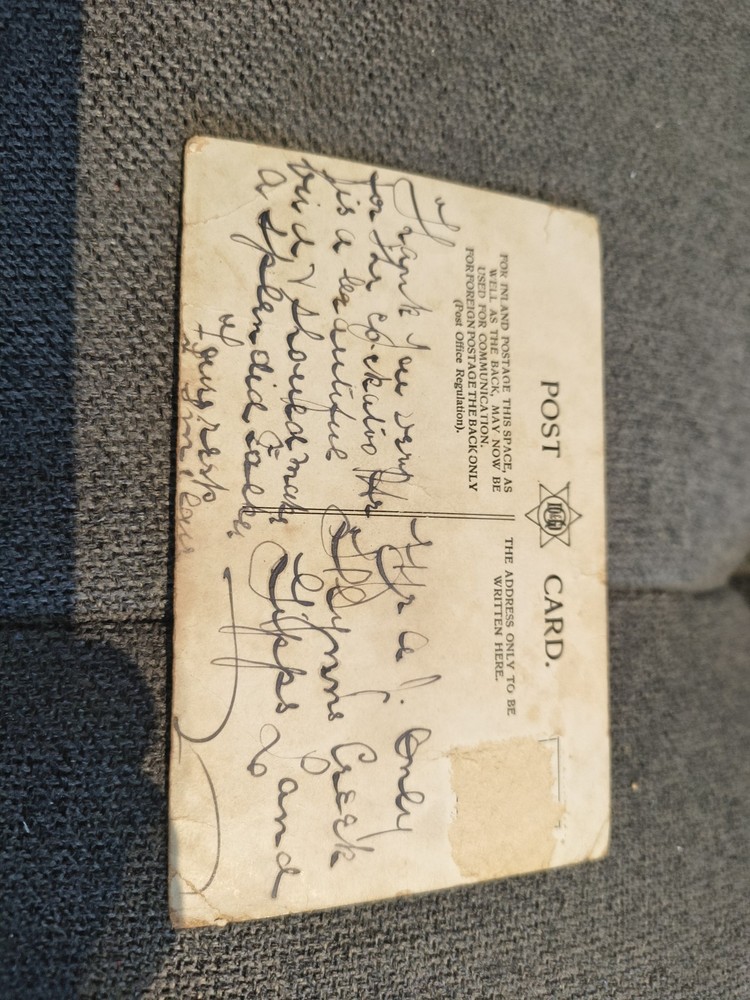 POST CARD.
FOR INLAND POSTAGE THIS SPACE, AS
WELL AS THE BACK, MAY NOW BE
USED FOR COMMUNICATION.
FOR FOREIGN POSTAGE THE BACK ONLY
(Post Office Regulation).
THE ADDRESS ONLY TO BE
WRITTEN HERE.
Thank you very
for the cockatoo He
is a beautiful
bird & should make
a splendid
Mr A. J. Emley
Flynns Creek
Gipps Land